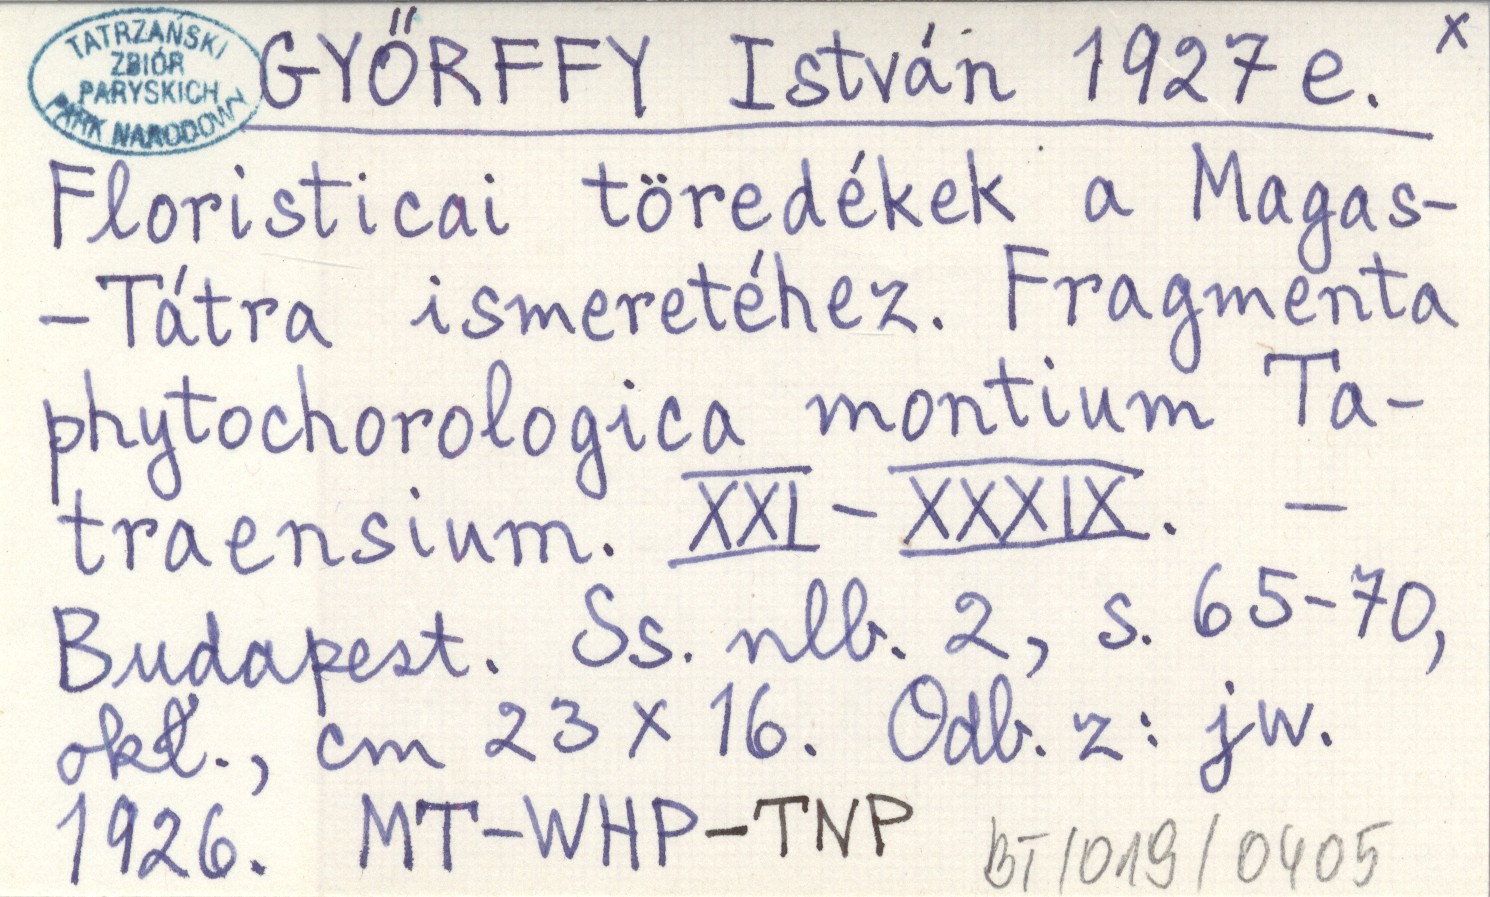 TATRZAŃSKI
ZBIÓR
PARYSKICH
PARK NARODOWY
GYŐRFFY István 1927 e. x
Floristicai töredékek a Magas-
-Tátra ismeretéhez. Fragmenta
phytochorologica montium Ta-
traensium. XXI - XXXIX. -
Budapest. Ss. nlb. 2, s. 65-70,
okł., cm 23 x 16. Odb. z: jw.
1926. MT-WHP-TNP
BT/019/0405